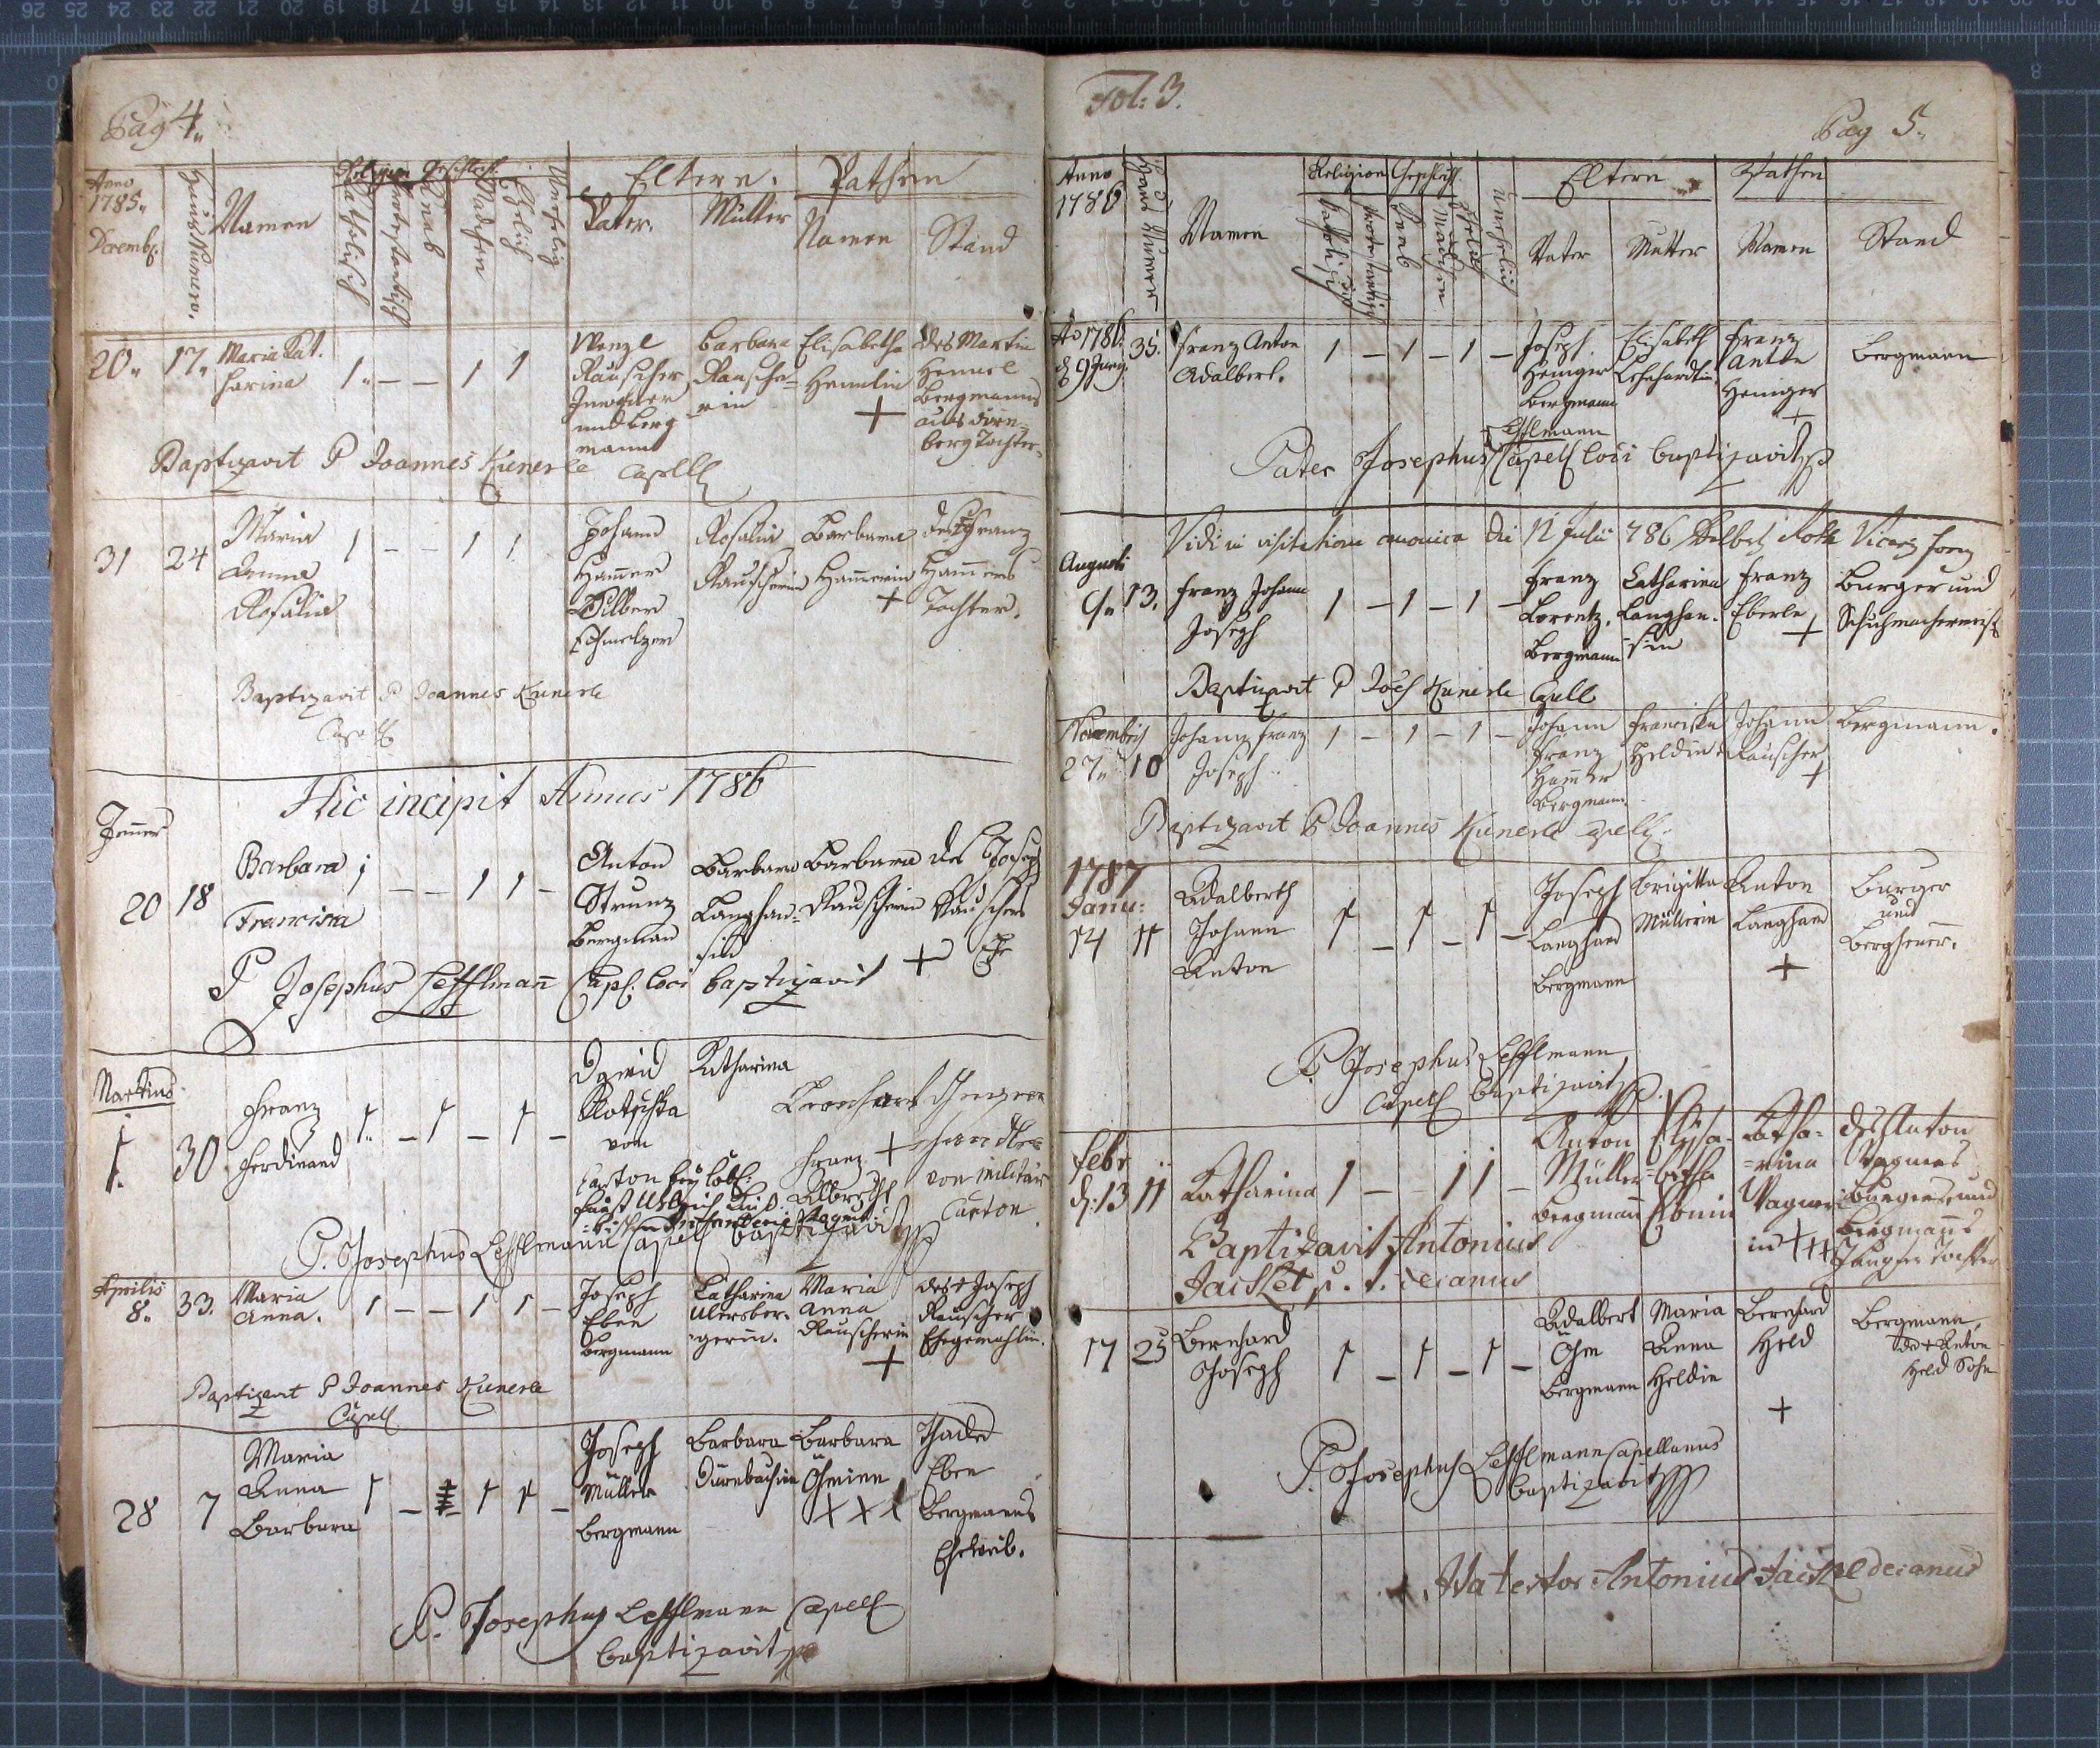 Pag 4.
Anno
1785.
Decemb.
Haus Numero.
Namen
Religion
Geschlecht
Catholisch
Protestantisch
Knab
Madchen
Ehelich
Unehelig
Eltern.
Pathen
Vater.
Mutter
Namen
Stand
20. 17. Maria Kat.
harina
1 – – 1 1
Wenzl
Rauscher
Inwohner
und Berg
mann
Barbara
Rausche=
rin
Elisabetha
Hemelin
+
des Martin
Hemerl
Bergmanns
aus
berg Tochter.
Baptizavit P Joannes Kunerle Capell
31 24 Maria
Anna
Rosalia
1 – – 1 1
Johann
Hammer
Silber
schmelzer
Rosalia
Rauscherin
Barbara
Hamerin
+
des Franz
Hammers
Tochter.
Baptizavit P Joannes Kunerle
Capell
Hic incipit Annus 1786
Jenner
20 18 Barbara
Francisca
1 – – 1 1 –
Anton
Strunz
Bergman
Barbara
Langhan=
sin
Barbara
Rauscherin
+
des Joseph
Rauschers
P Josephus Lefflmann Capl. loci baptizavit
Martius
1. 30. Franz
Ferdinand
1 – 1 – 1 –
David
Kotuska
vom
Canton
Katharina
Leonhard
Franz +
Albrecht
vom Militär
Canton
P. Josephus Lefflmann Capell baptizavit
Aprilis
8. 33. Maria
Anna.
1 – – 1 1 –
Joseph
Eben
Bergmann
Catharina
Ulersber=
gerin.
Maria
Anna
Rauscherin
+
des Joseph
Rauscher
Ehegemahlin.
Baptizavit P Joannes Kunerle
Capell
28 7 Maria
Anna
Barbara
1 – 1 1 –
Joseph
Müller
Bergmann
Barbara
Dürnbachin
Barbara
Öhmin
XXX
Thade
Eben
Bergmanns
Eheweib.
P. Josephus Lefflmann Capell
baptizavit
Fol: 3.
Pag 5.
Anno
1786
Haus Numero
Namen
Religion
Geschlecht
Catholisch
Protestantisch
Knab
Madchen
Ehelich
Unehelig
Eltern
Pathen
Vater
Mutter
Namen
Stand
Ao 1786.
d 9 Juny. 35. Franz Anton
Adalbert.
1 – 1 – 1 –
Joseph
Heniger
Bergmann
Elisabeth
Lehnhardtin.
Franz
Anton
Heniger
+
Bergmann
Lefflmann
Pater Josephus Capell loci baptizavit
Vidi in visitatione canonica die 12 Julii 786
Augusti
13. Franz Johann
Joseph
1 – 1 – 1 –
Franz
Lorentz.
Bergmann
Catharina
Langhan=
sin
Franz
Eberle
+
Burger und
Schuhmachermeist
Baptizavit P Joes Kunerle Capell
Novembris
27. 10 Johann Franz
Joseph
1 – 1 – 1 –
Johann
Franz
Hamer
Bergmann
Franciska
Heldin
Johann
Rauscher
+
Bergmann.
Baptizavit P Joannes Kunerle Capell.
1787
Janu:
14 11 Adalberth
Johann
Anton
1 – 1 – 1 –
Joseph
Langhans
Bergmann
Brigitta
Müllerin
Anton
Langhans
+
Burger
und
Bergheuer.
P. Josephus Lefflmann
Capell baptizavit
Febr
d: 13 11 Katharina
1 – – 1 1 –
Anton
Müller
Bergman
Elisa=
betha
Katha=
rina
Wagner
in +++
des Anton
Wagners
Burgers und
Bergmans
Jungfer Tochter
Baptizavit Antonius
decanus
17 25 Bernhard
Joseph
1 – 1 – 1 –
Adalbert
Öhm
Bergmann
Maria
Anna
Heldin
Bernhard
Held
+
Bergmann,
des + Anton
Held Sohn
P. Josephus Lefflmann Capellanus
baptizavit
Ita testor Antonius decanus